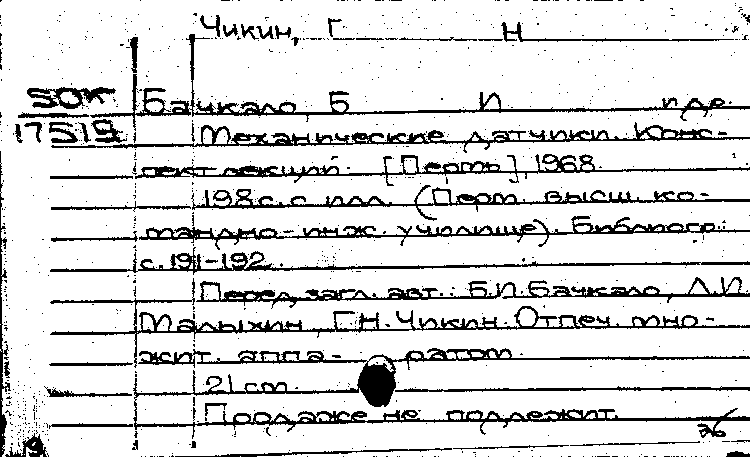 Чикин, Г Н
50К Бачкало, Б И и др
17519 Механические датчики. Конс-
пект лекций. [Пермь], 1968.
198с. с илл. (Перм. высш. ко-
мандно-инж. училище). Библиогр.:
с. 191-192.
Перед загл. авт.: Б.И.Бачкало, Л.И.
Малыхин, Г.Н.Чикин. Отпеч. мно-
жит. аппа- ратом.
21 cm.
Продаже не подлежит.